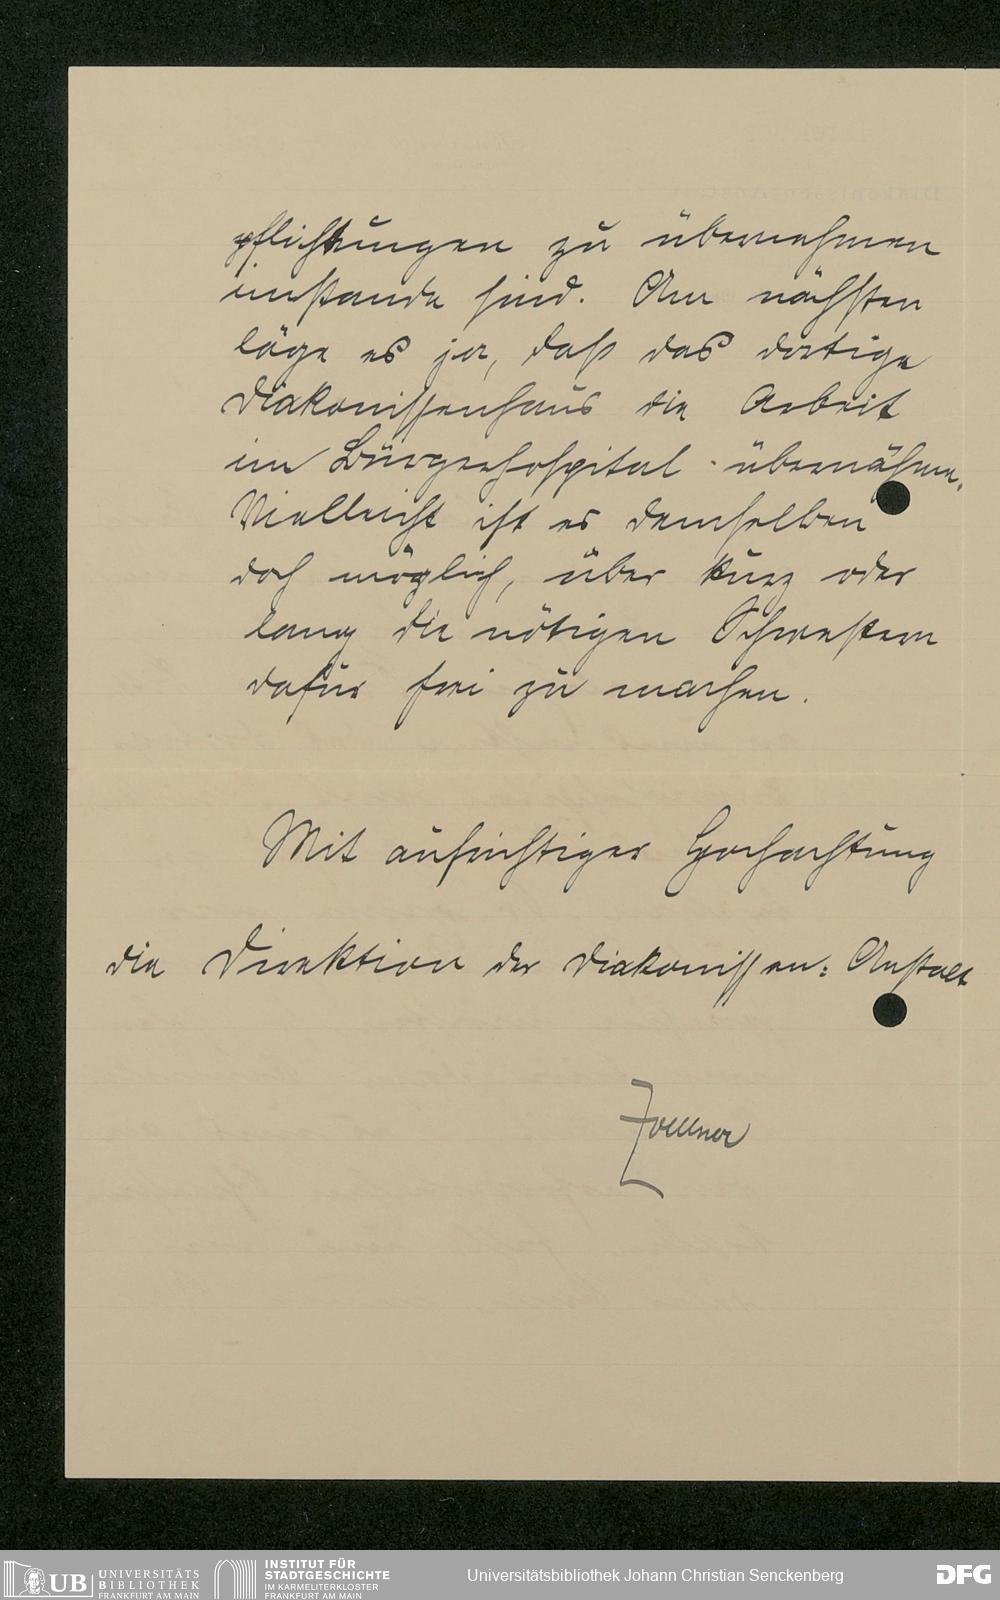 pflichtungen zu übernehmen
imstande sind. Am nächsten
läge es ja, daß das dortige
Diakonissenhaus die Arbeit
im Bürgerhospital übernähme.
Vielleicht ist es demselben
doch möglich, über kurz oder
lang die nötigen Schwestern
dafür frei zu machen.
Mit aufrichtiger Hochachtung
die Direktion der Diakonissen-Anstalt
Zoellner
UB UNIVERSITÄTS
BIBLIOTHEK
FRANKFURT AM MAIN
INSTITUT FÜR
STADTGESCHICHTE
IM KARMELITERKLOSTER
FRANKFURT AM MAIN
Universitätsbibliothek Johann Christian Senckenberg
DFG